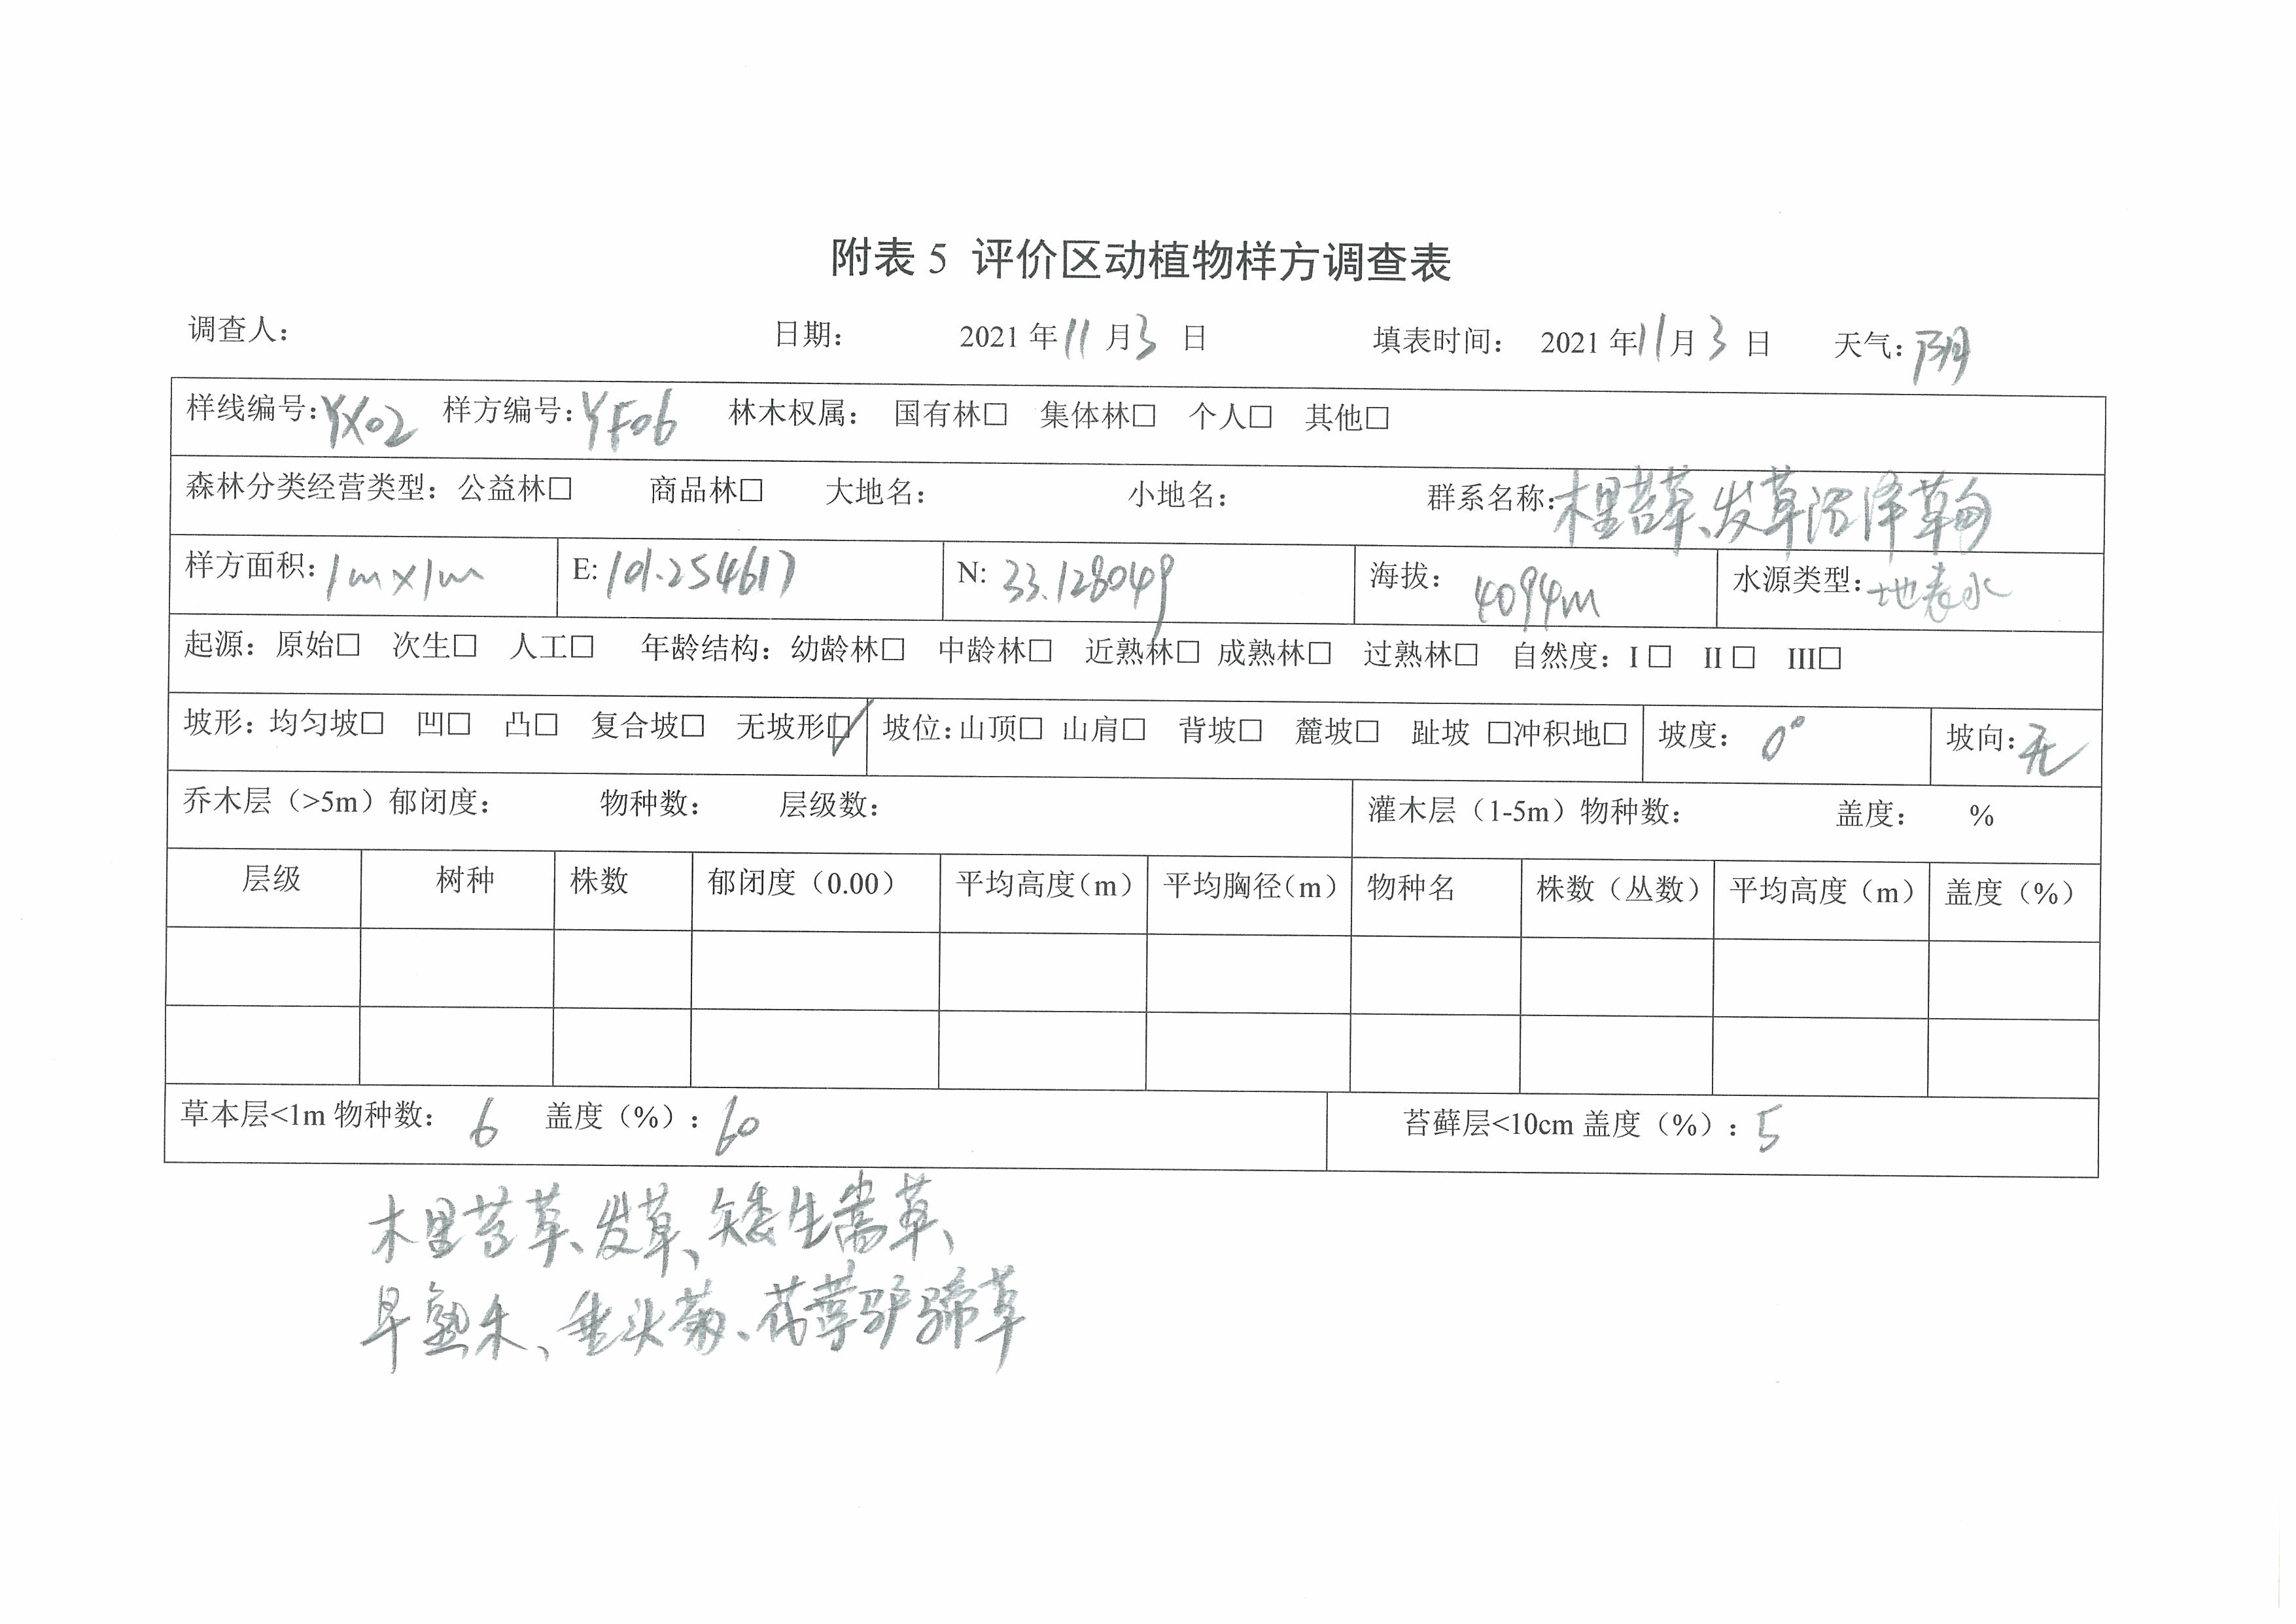 附表 5 评价区动植物样方调查表
调查人： 日期： 2021 年 11 月 3 日 填表时间： 2021 年 11 月 3 日 天气：阴
样线编号：YX02 样方编号：YF06 林木权属： 国有林□ 集体林□ 个人□ 其他□
森林分类经营类型：公益林□ 商品林□ 大地名： 小地名： 群系名称：木里苔草、发草沼泽草甸
样方面积：1m×1m E: 101.254617 N: 33.128049 海拔： 4094m 水源类型：地表水
起源：原始□ 次生□ 人工□ 年龄结构：幼龄林□ 中龄林□ 近熟林□ 成熟林□ 过熟林□ 自然度：I □ II □ III□
坡形：均匀坡□ 凹□ 凸□ 复合坡□ 无坡形☑ 坡位：山顶□ 山肩□ 背坡□ 麓坡□ 趾坡 □冲积地□ 坡度： 0° 坡向：无
乔木层（>5m）郁闭度： 物种数： 层级数： 灌木层（1-5m）物种数： 盖度： %
层级 树种 株数 郁闭度（0.00） 平均高度（m） 平均胸径（m） 物种名 株数（丛数） 平均高度（m） 盖度（%）
草本层<1m 物种数： 6 盖度（%）：60 苔藓层<10cm 盖度（%）：5
木里苔草、发草、矮生嵩草、
早熟禾、垂头菊、花葶驴蹄草